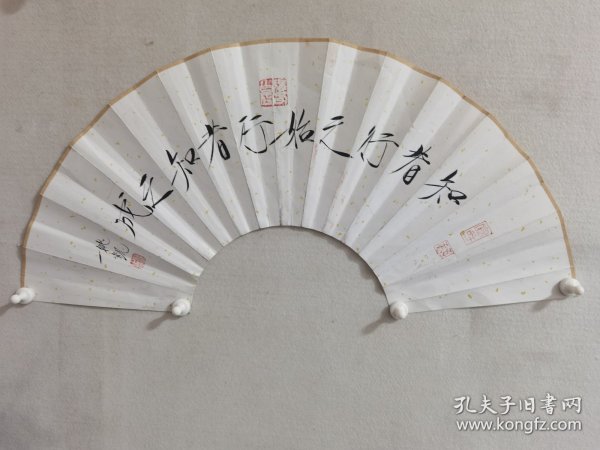 知者行之始行者知之成
孔夫子旧书网
www.kongfz.com